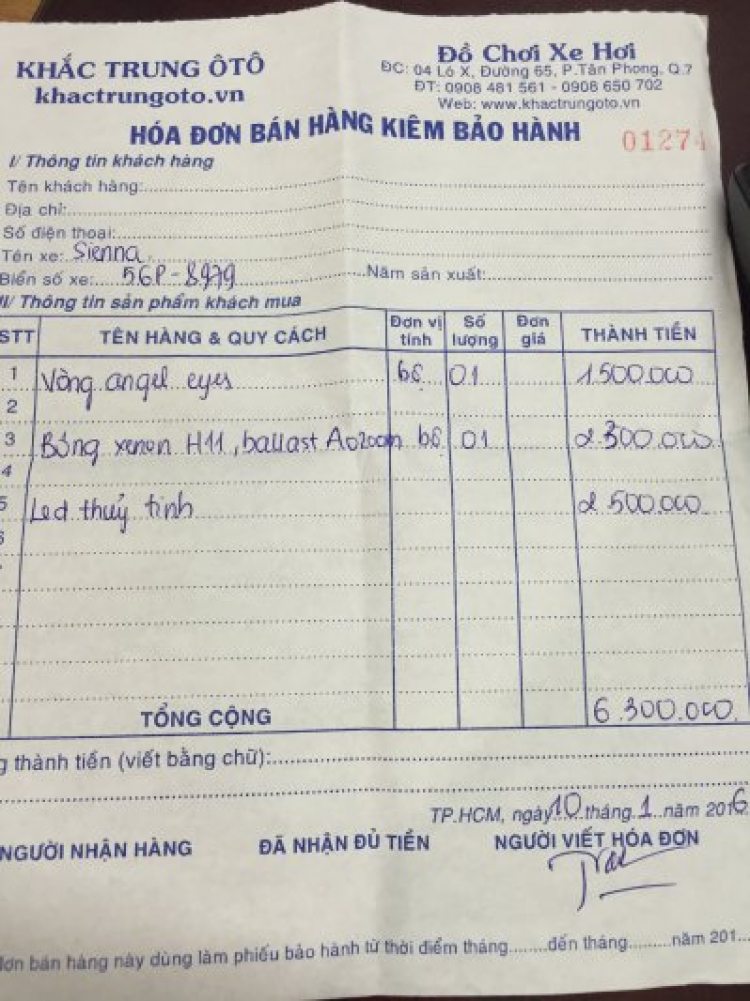 KHẮC TRUNG ÔTÔ
khactrungoto.vn
Đồ Chơi Xe Hơi
ĐC: 04 Lô X, Đường 65, P.Tân Phong, Q.7
ĐT: 0908 481 561 - 0908 650 702
Web: www.khactrungoto.vn
HÓA ĐƠN BÁN HÀNG KIÊM BẢO HÀNH
01274
I/ Thông tin khách hàng
Tên khách hàng:
Địa chỉ:
Số điện thoại:
Tên xe: Sienna
Biển số xe: 56P-8979 Năm sản xuất:
II/ Thông tin sản phẩm khách mua
STT TÊN HÀNG & QUY CÁCH Đơn vị tính Số lượng Đơn giá THÀNH TIỀN
1 Vòng angel eyes bộ 01 1500.000
2
3 Bóng xenon H11, ballast Aozoom bộ 01 2 300.000
4
5 Led thuỷ tinh 2 500.000
6
TỔNG CỘNG 6.300.000
thành tiền (viết bằng chữ):
TP.HCM, ngày 10 tháng 1 năm 2016
NGƯỜI NHẬN HÀNG ĐÃ NHẬN ĐỦ TIỀN NGƯỜI VIẾT HÓA ĐƠN
đơn bán hàng này dùng làm phiếu bảo hành từ thời điểm tháng........đến tháng.........năm 201...